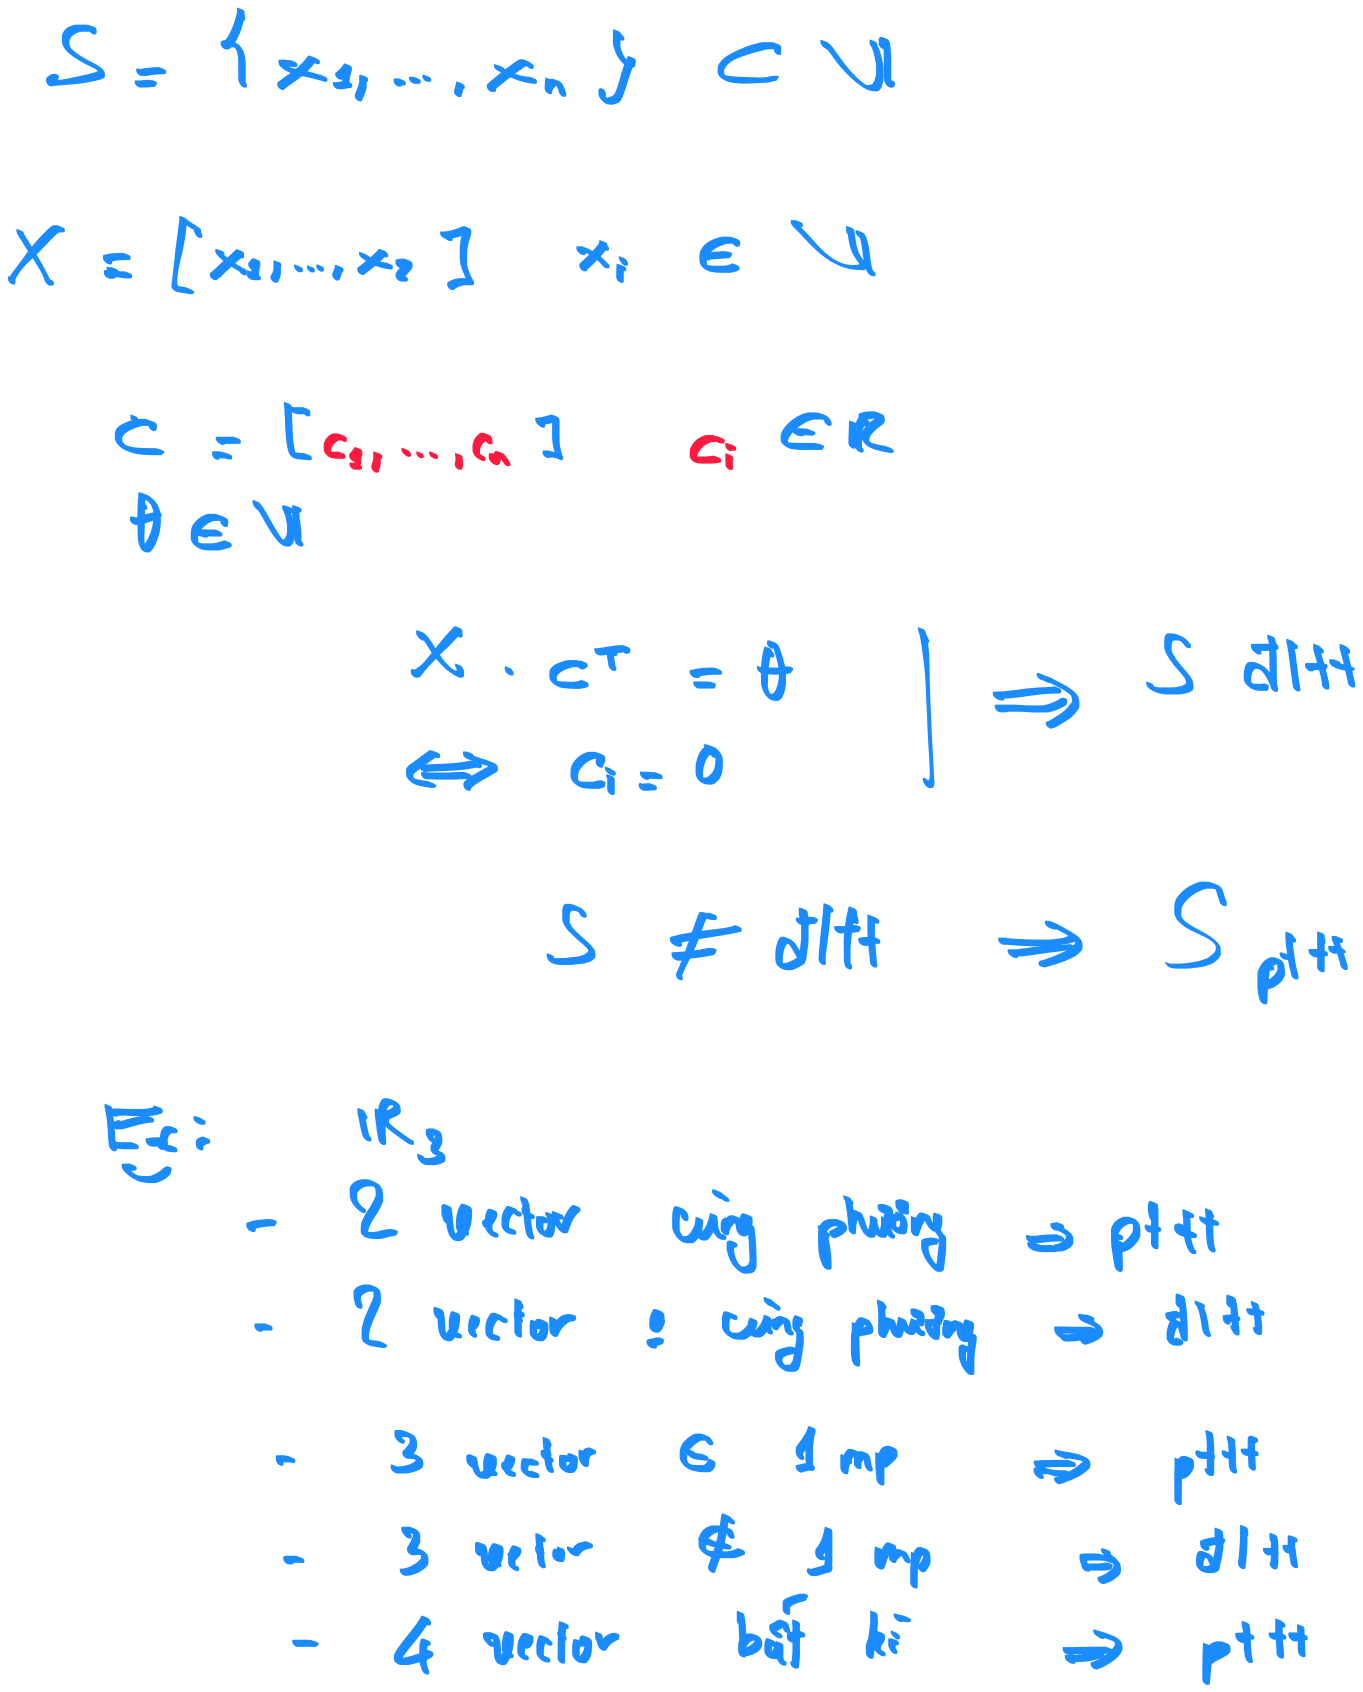 S = { x1, ..., xn } ⊂ V
X = [x1, ..., x2] xi ∈ V
c = [c1, ..., cn] ci ∈ R
θ ∈ V
X . c^T = θ ⇒ S đltt
⇔ ci = 0
S ≠ đltt ⇒ S pttt
Ex: R3
- 2 vector cùng phương ⇒ pttt
- 2 vector ! cùng phương ⇒ đltt
- 3 vector ∈ 1 mp ⇒ pttt
- 3 vetor ∉ 1 mp ⇒ đltt
- 4 vector bất kì ⇒ pttt